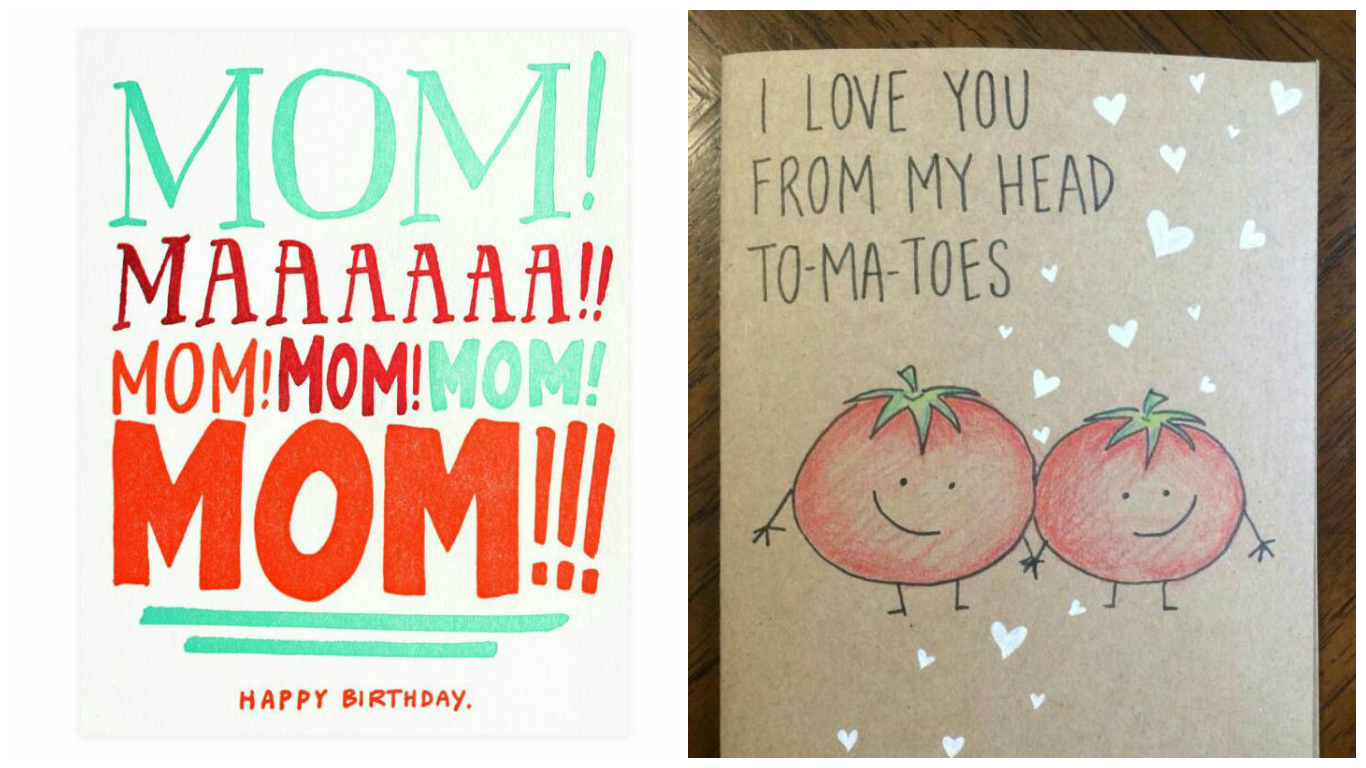 MOM!
MAAAAAA!!
MOM! MOM! MOM!
MOM!!!
HAPPY BIRTHDAY.
I LOVE YOU
FROM MY HEAD
TO-MA-TOES